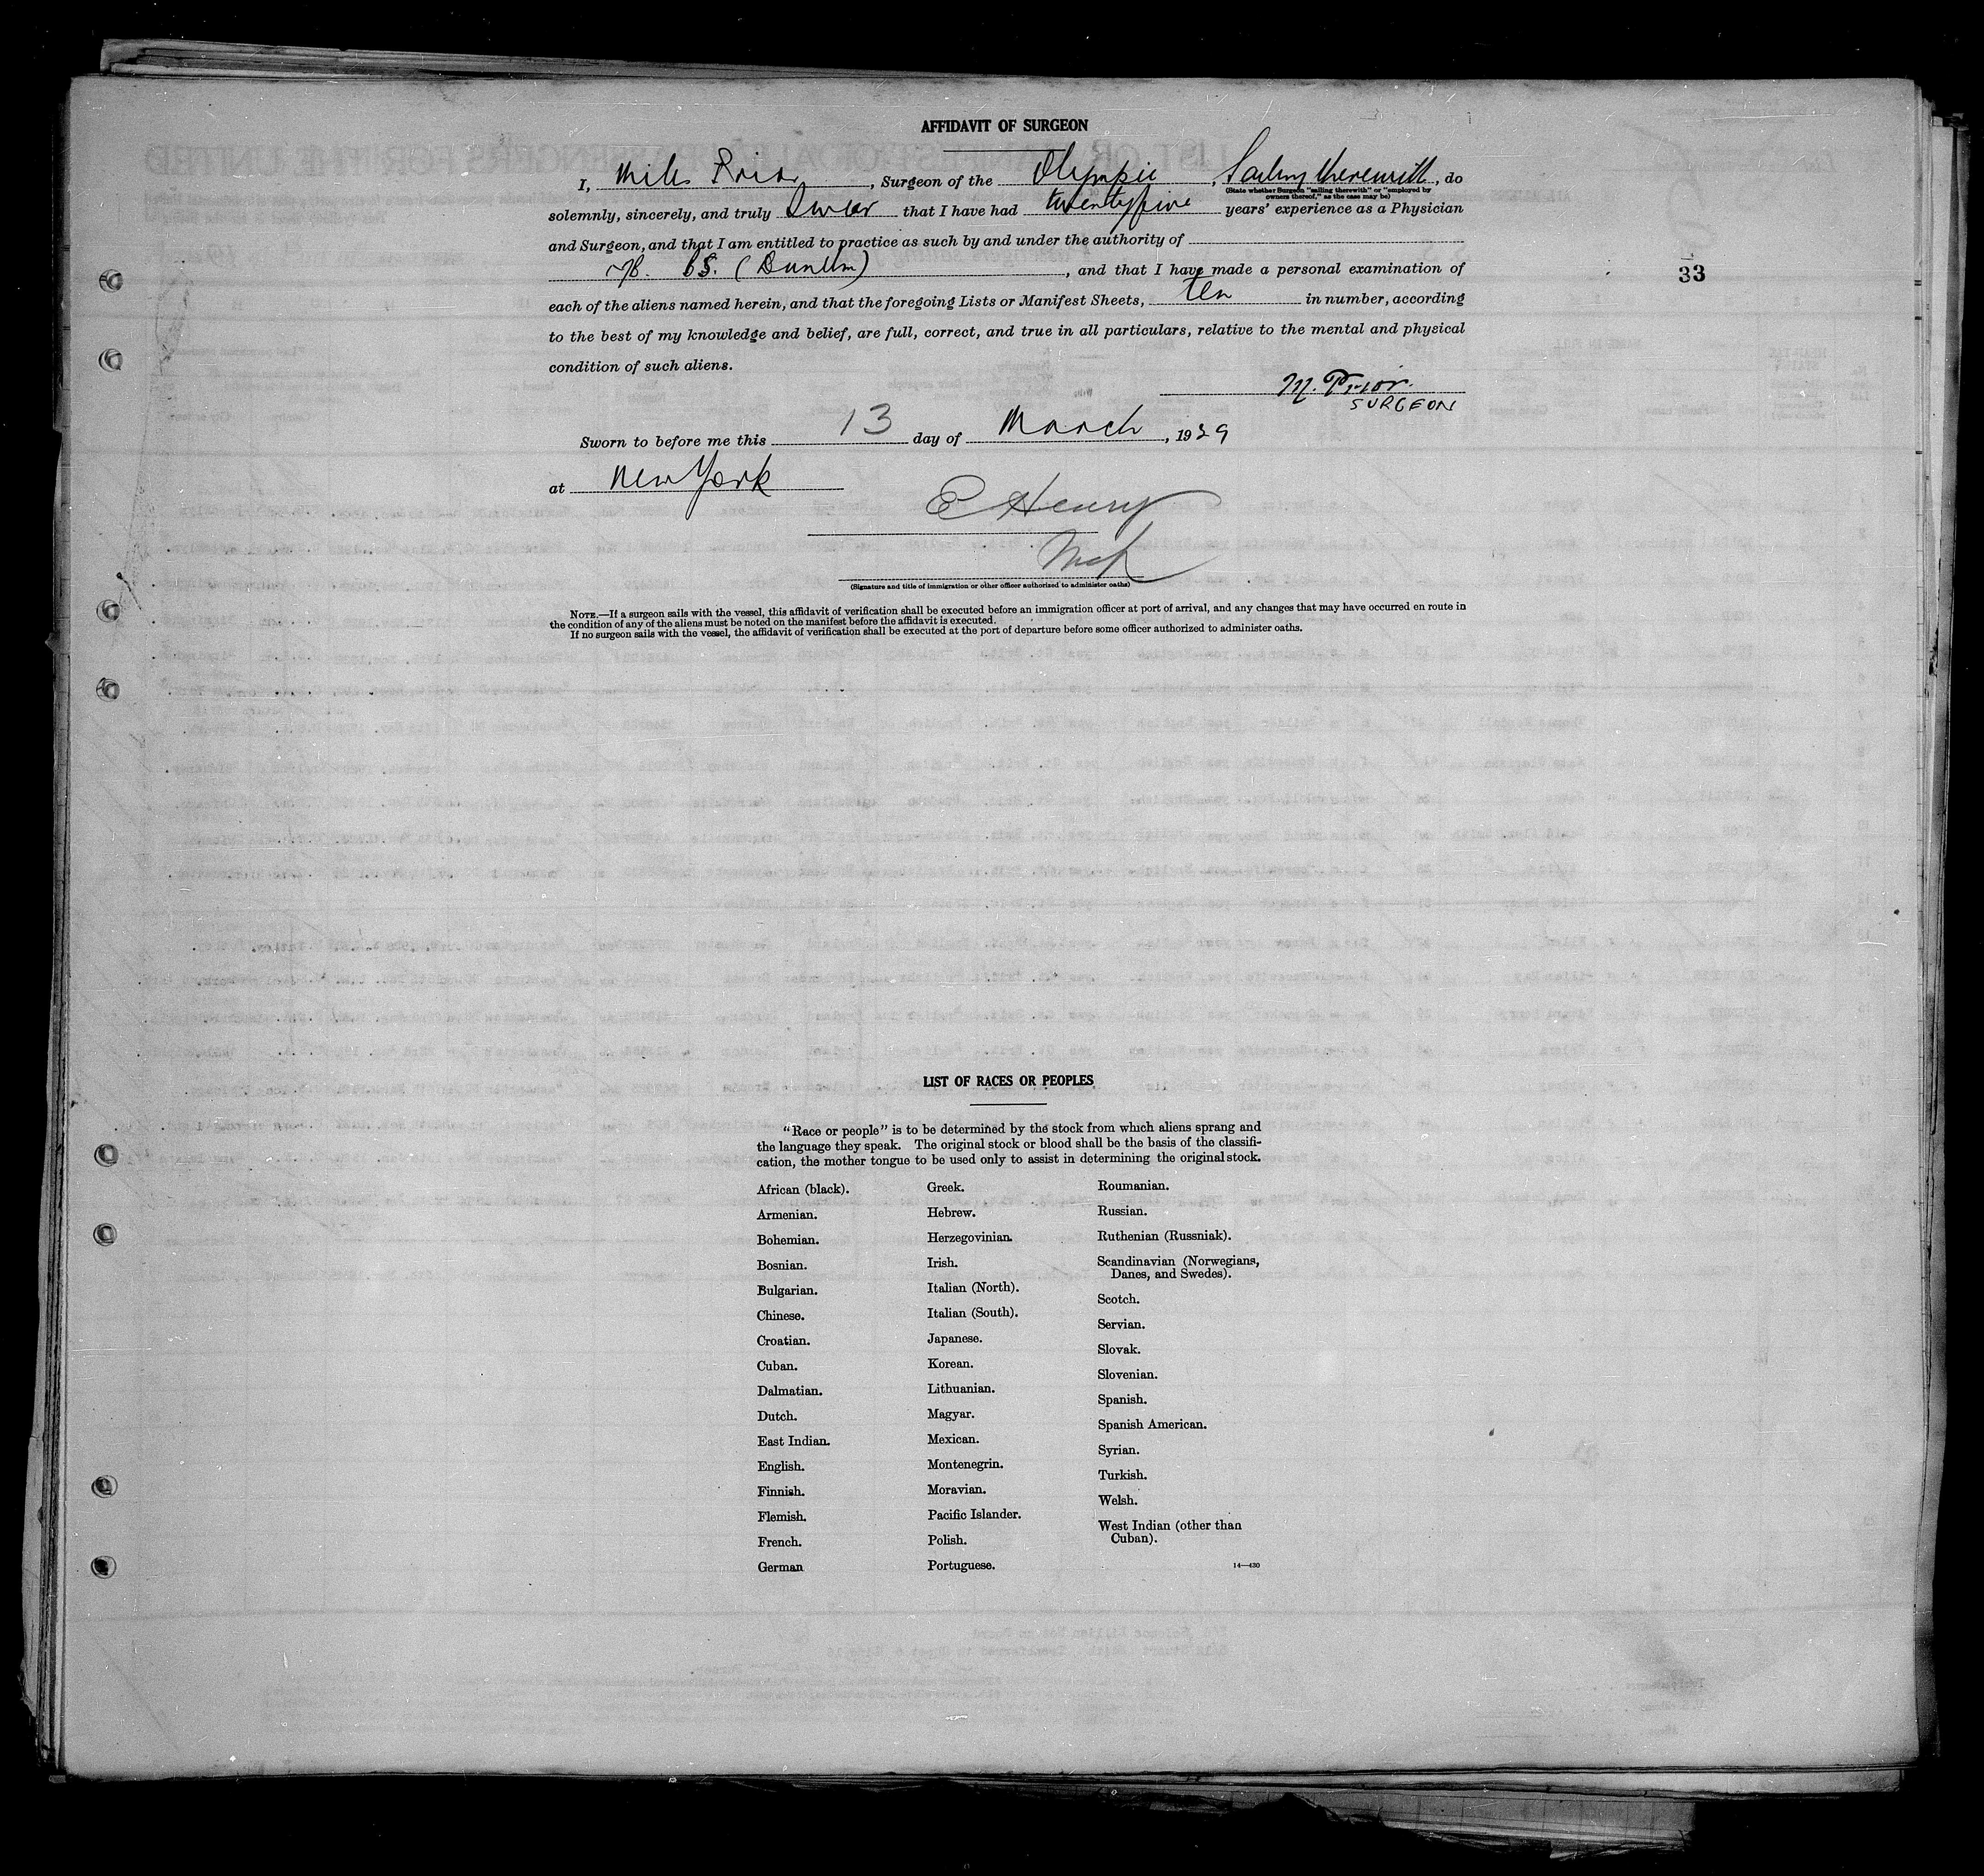 AFFIDAVIT OF SURGEON
I, Miles Prior, Surgeon of the Olympic, Sailing therewith, do
(State whether Surgeon "sailing therewith" or "employed by
owners thereof," as the case may be)
solemnly, sincerely, and truly Swear that I have had twentyfive years' experience as a Physician
and Surgeon, and that I am entitled to practice as such by and under the authority of
M. BS. (Dunelm), and that I have made a personal examination of
33
each of the aliens named herein, and that the foregoing Lists or Manifest Sheets, ten in number, according
to the best of my knowledge and belief, are full, correct, and true in all particulars, relative to the mental and physical
condition of such aliens.
M. Prior.
SURGEON
Sworn to before me this 13 day of March, 1929
at New York
E Henry
(Signature and title of immigration or other officer authorized to administer oaths)
NOTE.—If a surgeon sails with the vessel, this affidavit of verification shall be executed before an immigration officer at port of arrival, and any changes that may have occurred en route in
the condition of any of the aliens must be noted on the manifest before the affidavit is executed.
If no surgeon sails with the vessel, the affidavit of verification shall be executed at the port of departure before some officer authorized to administer oaths.
LIST OF RACES OR PEOPLES
"Race or people" is to be determined by the stock from which aliens sprang and
the language they speak. The original stock or blood shall be the basis of the classifi-
cation, the mother tongue to be used only to assist in determining the original stock.
African (black).
Armenian.
Bohemian.
Bosnian.
Bulgarian.
Chinese.
Croatian.
Cuban.
Dalmatian.
Dutch.
East Indian.
English.
Finnish.
Flemish.
French.
German
Greek.
Hebrew.
Herzegovinian.
Irish.
Italian (North).
Italian (South).
Japanese.
Korean.
Lithuanian.
Magyar.
Mexican.
Montenegrin.
Moravian.
Pacific Islander.
Polish.
Portuguese.
Roumanian.
Russian.
Ruthenian (Russniak).
Scandinavian (Norwegians,
Danes, and Swedes).
Scotch.
Servian.
Slovak.
Slovenian.
Spanish.
Spanish American.
Syrian.
Turkish.
Welsh.
West Indian (other than
Cuban).
14—430